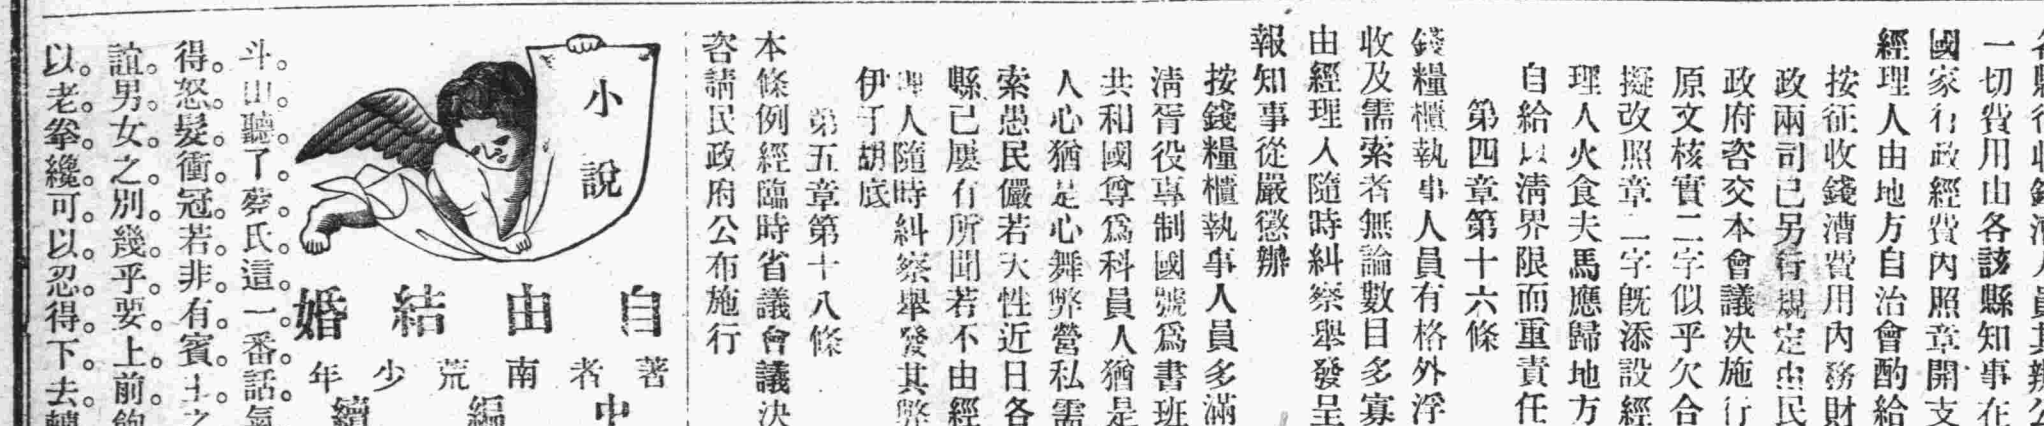 一切費用由各該縣知事在
國家行政經費內照章開支
經理人由地方自治會酌給
按征收錢漕費用內務財
政兩司已另行規定由民
政府咨交本會議決施行
原文核實二字似乎欠合
擬改照章二字旣添設經
理人火食夫馬應歸地方
自給以清界限而重責任
第四章第十六條
錢糧櫃執事人員有格外浮
收及需索者無論數目多寡
由經理人隨時糾察舉發呈
報知事從嚴懲辦
按錢糧櫃執事人員多滿
清胥役專制國號爲書班
共和國尊爲科員人猶是
人心猶是心舞弊營私需
索愚民儼若天性近日各
縣已屢有所聞若不由經
理人隨時糾察舉發其弊
伊于胡底
第五章第十八條
本條例經臨時省議會議決
咨請民政府公布施行
小說
自由結婚
著者南荒少年
中編續
斗山聽了蔡氏這一番話氣
得。怒。髮。衝。冠。若。非。有。賓。主。之
誼。男。女。之。別。幾。乎。要。上。前。飽
以。老。拳。纔。可。以。忍。得。下。去。轉